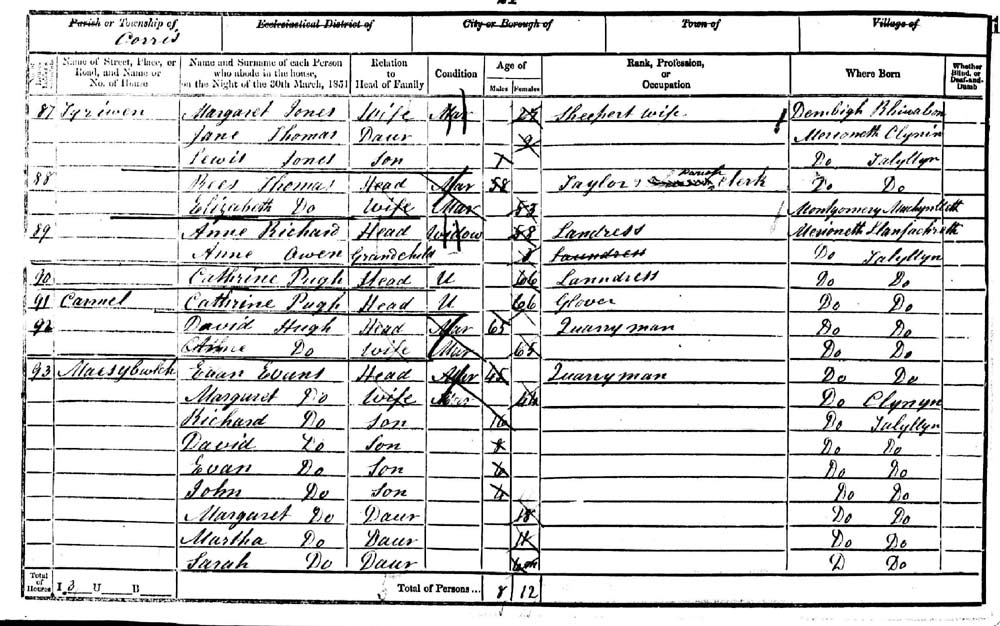 21
Parish or Township of Ecclesiastical District of City or Borough of Town of Village of
Corris
Name of Street, Place, or Road, and Name or No. of House
Name and Surname of each Person who abode in the house, on the Night of the 30th March, 1851
Relation to Head of Family
Condition
Age of
Males Females
Rank, Profession, or Occupation
Where Born
Whether Blind, or Deaf-and-Dumb
87 Margaret Jones Wife Mar Sheepert wife Denbigh
Jane Thomas Daur 9 Merioneth Clynin
Lewis Jones Son Do Talyllyn
88 Rees Thomas Head Mar 58 Taylor Parish Clerk Do Do
Elizabeth Do Wife Mar 53 Montgomery
89 Anne Richard Head Widow 58 Landress Merioneth
Anne Owen Grandchild Laundress Do Talyllyn
90 Cathrine Pugh Head U 66 Lanndress Do Do
91 Carmel Cathrine Pugh Head U 66 Glover Do Do
92 David Hugh Head Mar 65 Quarry man Do Do
Anne Do Wife Mar 65 Do Do
93 Evan Evans Head Mar 45 Quarryman Do Do
Margaret Do Wife Mar Do Clynyn
Richard Do Son Do Talyllyn
David Do Son Do Do
Evan Do Son Do Do
John Do Son Do Do
Margaret Do Daur 18 Do Do
Martha Do Daur 11 Do Do
Sarah Do Daur D Do
Total of Houses I 3 U B Total of Persons... 8 12